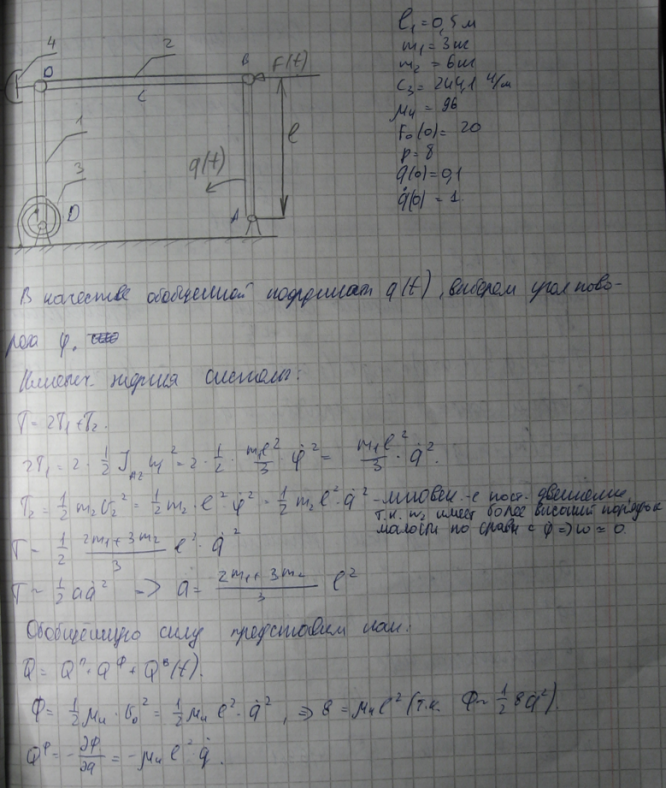 l₁ = 0,5 м
m₁ = 3 кг
m₂ = 6 кг
c₃ = 244,1 Н/м
μ₄ = 96
F₀(0) = 20
p = 8
q(0) = 0,1
q̇(0) = 1
4
O
2
B
F(t)
C
1
l
q(t)
3
D
A
В качестве обобщенной координат q(t), выберем угол пово-
рота φ.
Кинетич. энергия системы:
T = 2T₁ + T₂.
2T₁ = 2 · 1/2 J ω² = 2 · 1/2 · m₁l²/3 · φ̇² = m₁l²/3 · q̇².
T₂ = 1/2 m₂ v₂² = 1/2 m₂ · l² · φ̇² = 1/2 m₂ l² · q̇² - мгновен. - е пост. движение,
т.к. имеет более высокий порядок
малости по сравн с φ ⇒ ω ≈ 0.
T = 1/2 · (2m₁ + 3m₂)/3 · l² · q̇²
T = 1/2 a q̇² → a = (2m₁ + 3m₂)/3 · l²
Обобщённую силу представим как:
Q = Qⁿ + Q^φ + Q^в(t).
Φ = 1/2 μ₄ · v₀² = 1/2 μ₄ l² · q̇², ⇒ в = μ₄ l² (т.к. Φ = 1/2 в q̇²).
Q^φ = - ∂Φ/∂q̇ = - μ₄ l² · q̇.